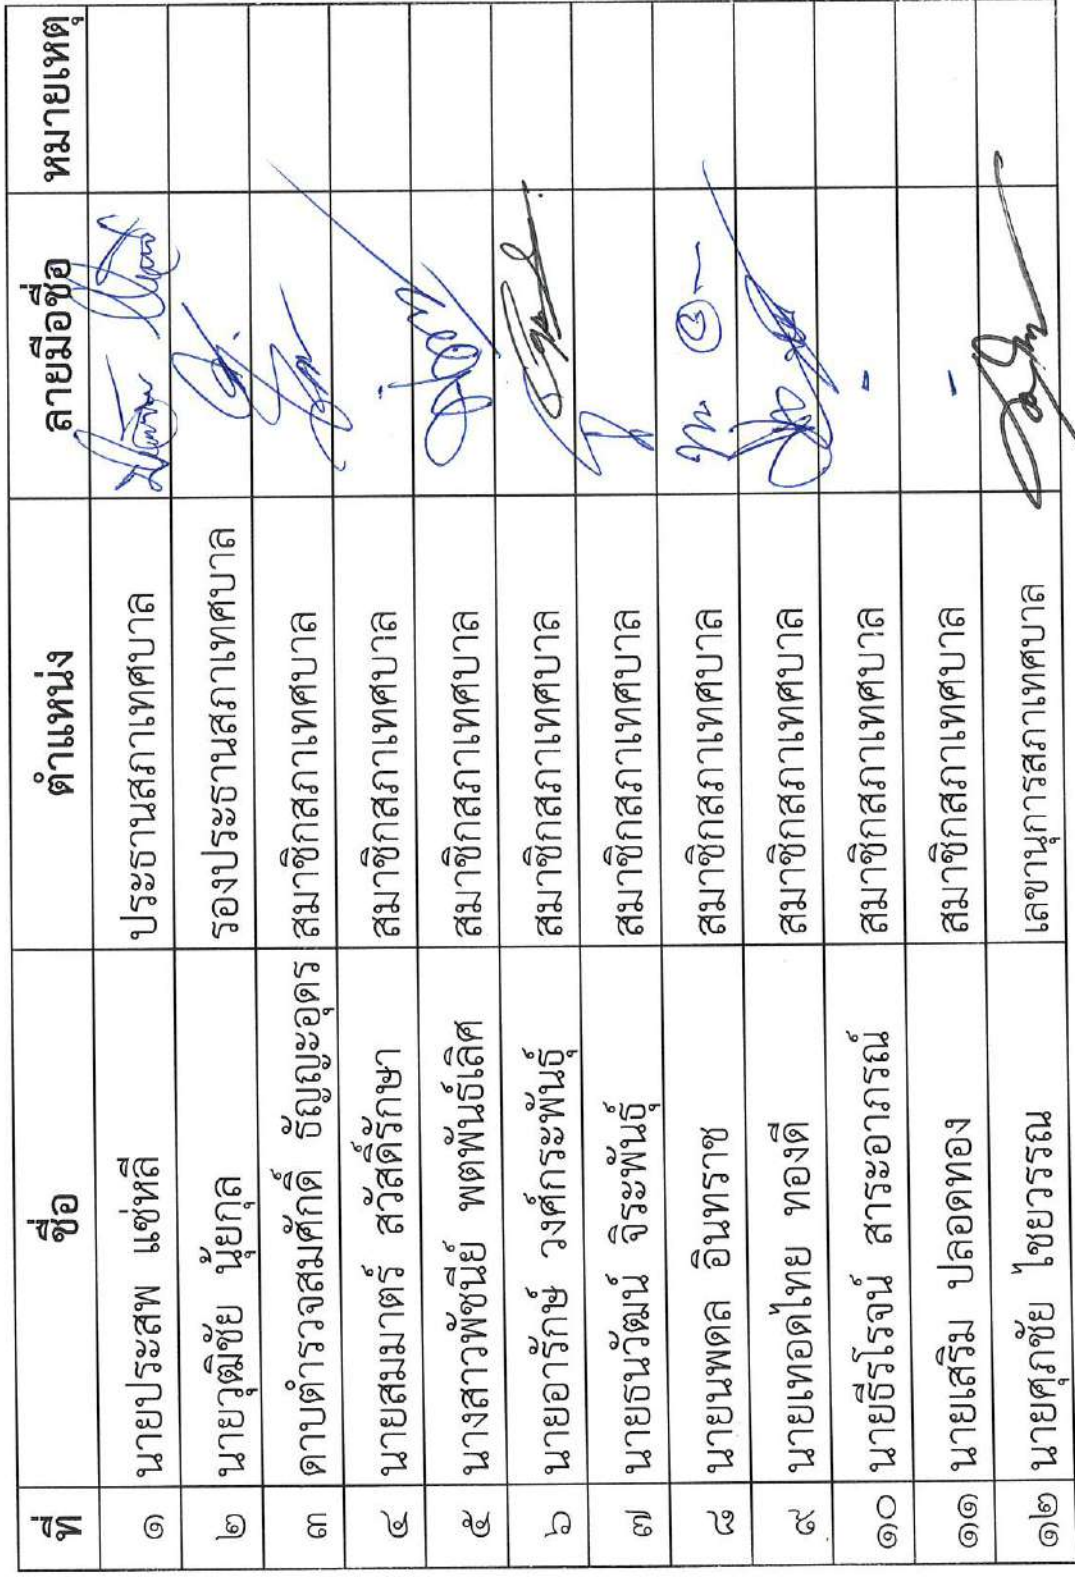 ที่ ชื่อ ตำแหน่ง ลายมือชื่อ หมายเหตุ
๑ นายประสพ แซ่หลี ประธานสภาเทศบาล
๒ นายวุฒิชัย นุ้ยกุล รองประธานสภาเทศบาล
๓ ดาบตำรวจสมศักดิ์ ธัญญะอุดร สมาชิกสภาเทศบาล
๔ นายสมมาตร์ สวัสดิ์รักษา สมาชิกสภาเทศบาล
๕ นางสาวพัชนีย์ พตพันธ์เลิศ สมาชิกสภาเทศบาล
๖ นายอารักษ์ วงศ์กระพันธุ์ สมาชิกสภาเทศบาล
๗ นายธนวัฒน์ จิระพันธุ์ สมาชิกสภาเทศบาล
๘ นายนพดล อินทราช สมาชิกสภาเทศบาล
๙ นายเทอดไทย ทองดี สมาชิกสภาเทศบาล
๑๐ นายธีรโรจน์ สาระอาภรณ์ สมาชิกสภาเทศบาล -
๑๑ นายเสริม ปลอดทอง สมาชิกสภาเทศบาล -
๑๒ นายศุภชัย ไชยวรรณ เลขานุการสภาเทศบาล